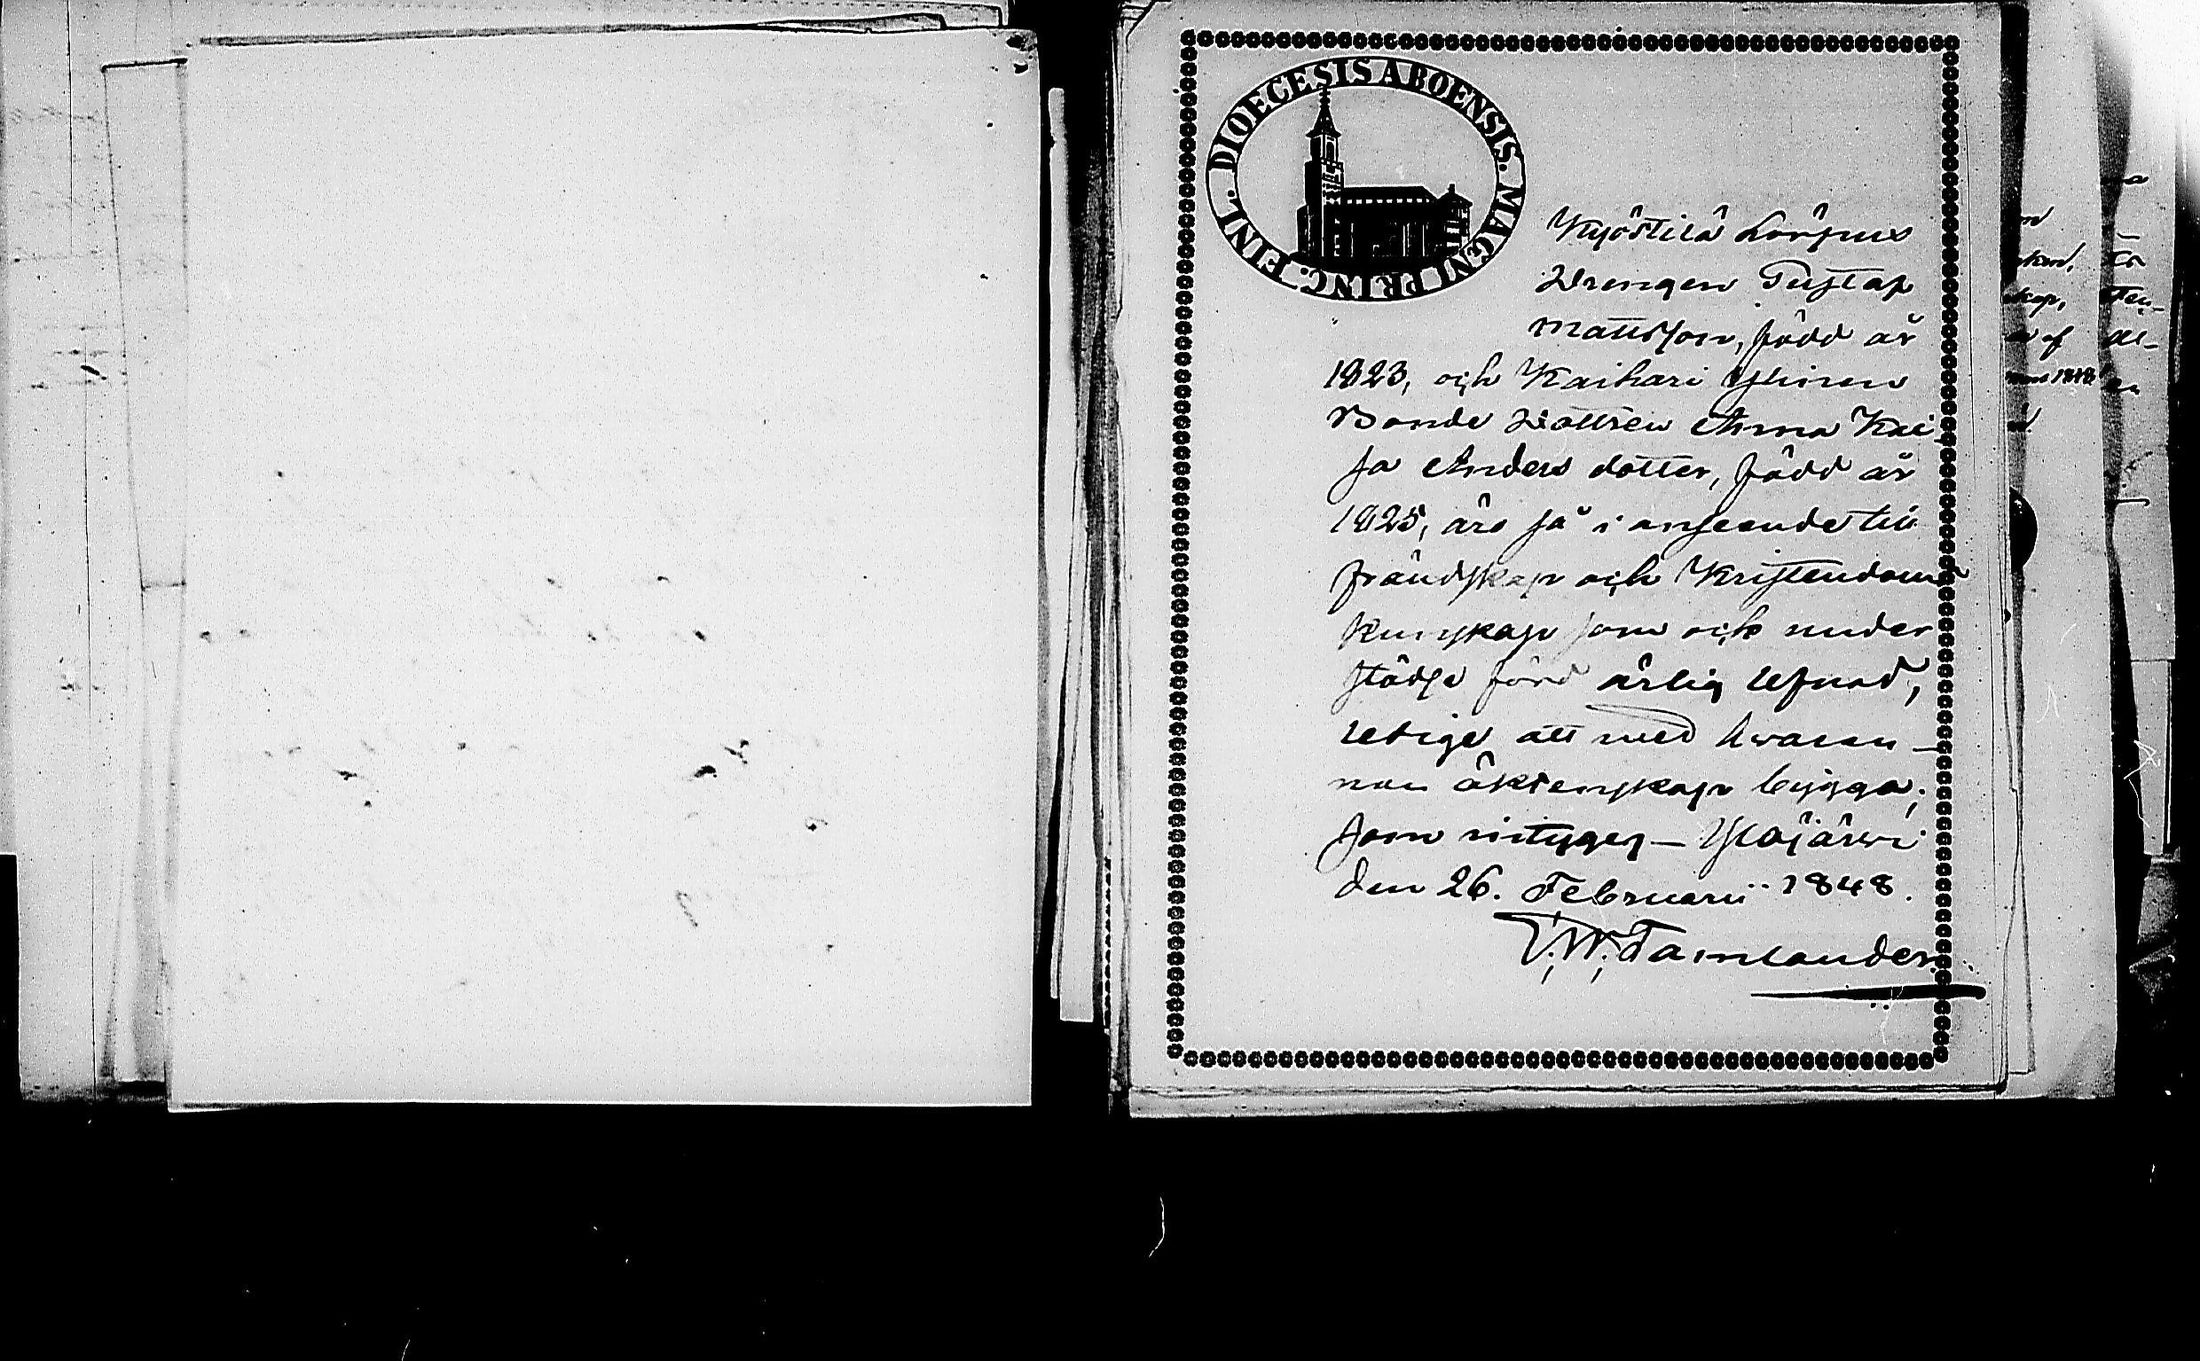 DIOECESIS ABOENSIS. MAGNI PRINC. FINL.
Kyöstilä Torpus
Drengen Gustaf
Mattsson, född år
1823, och Kaihari Yhinen
Bonde Dottren Anna Kai
sa Anders dotter, född år
1825, äro så i anseende till
frändskap och Kristendoms
kunskap som och under
städse förd ärlig lefnad,
ledige att med hwaran-
nan äktenskap bygga;
som intygeg— Ylöjärwi
den 26. Februarii 1848.
F. W. Tamlander.